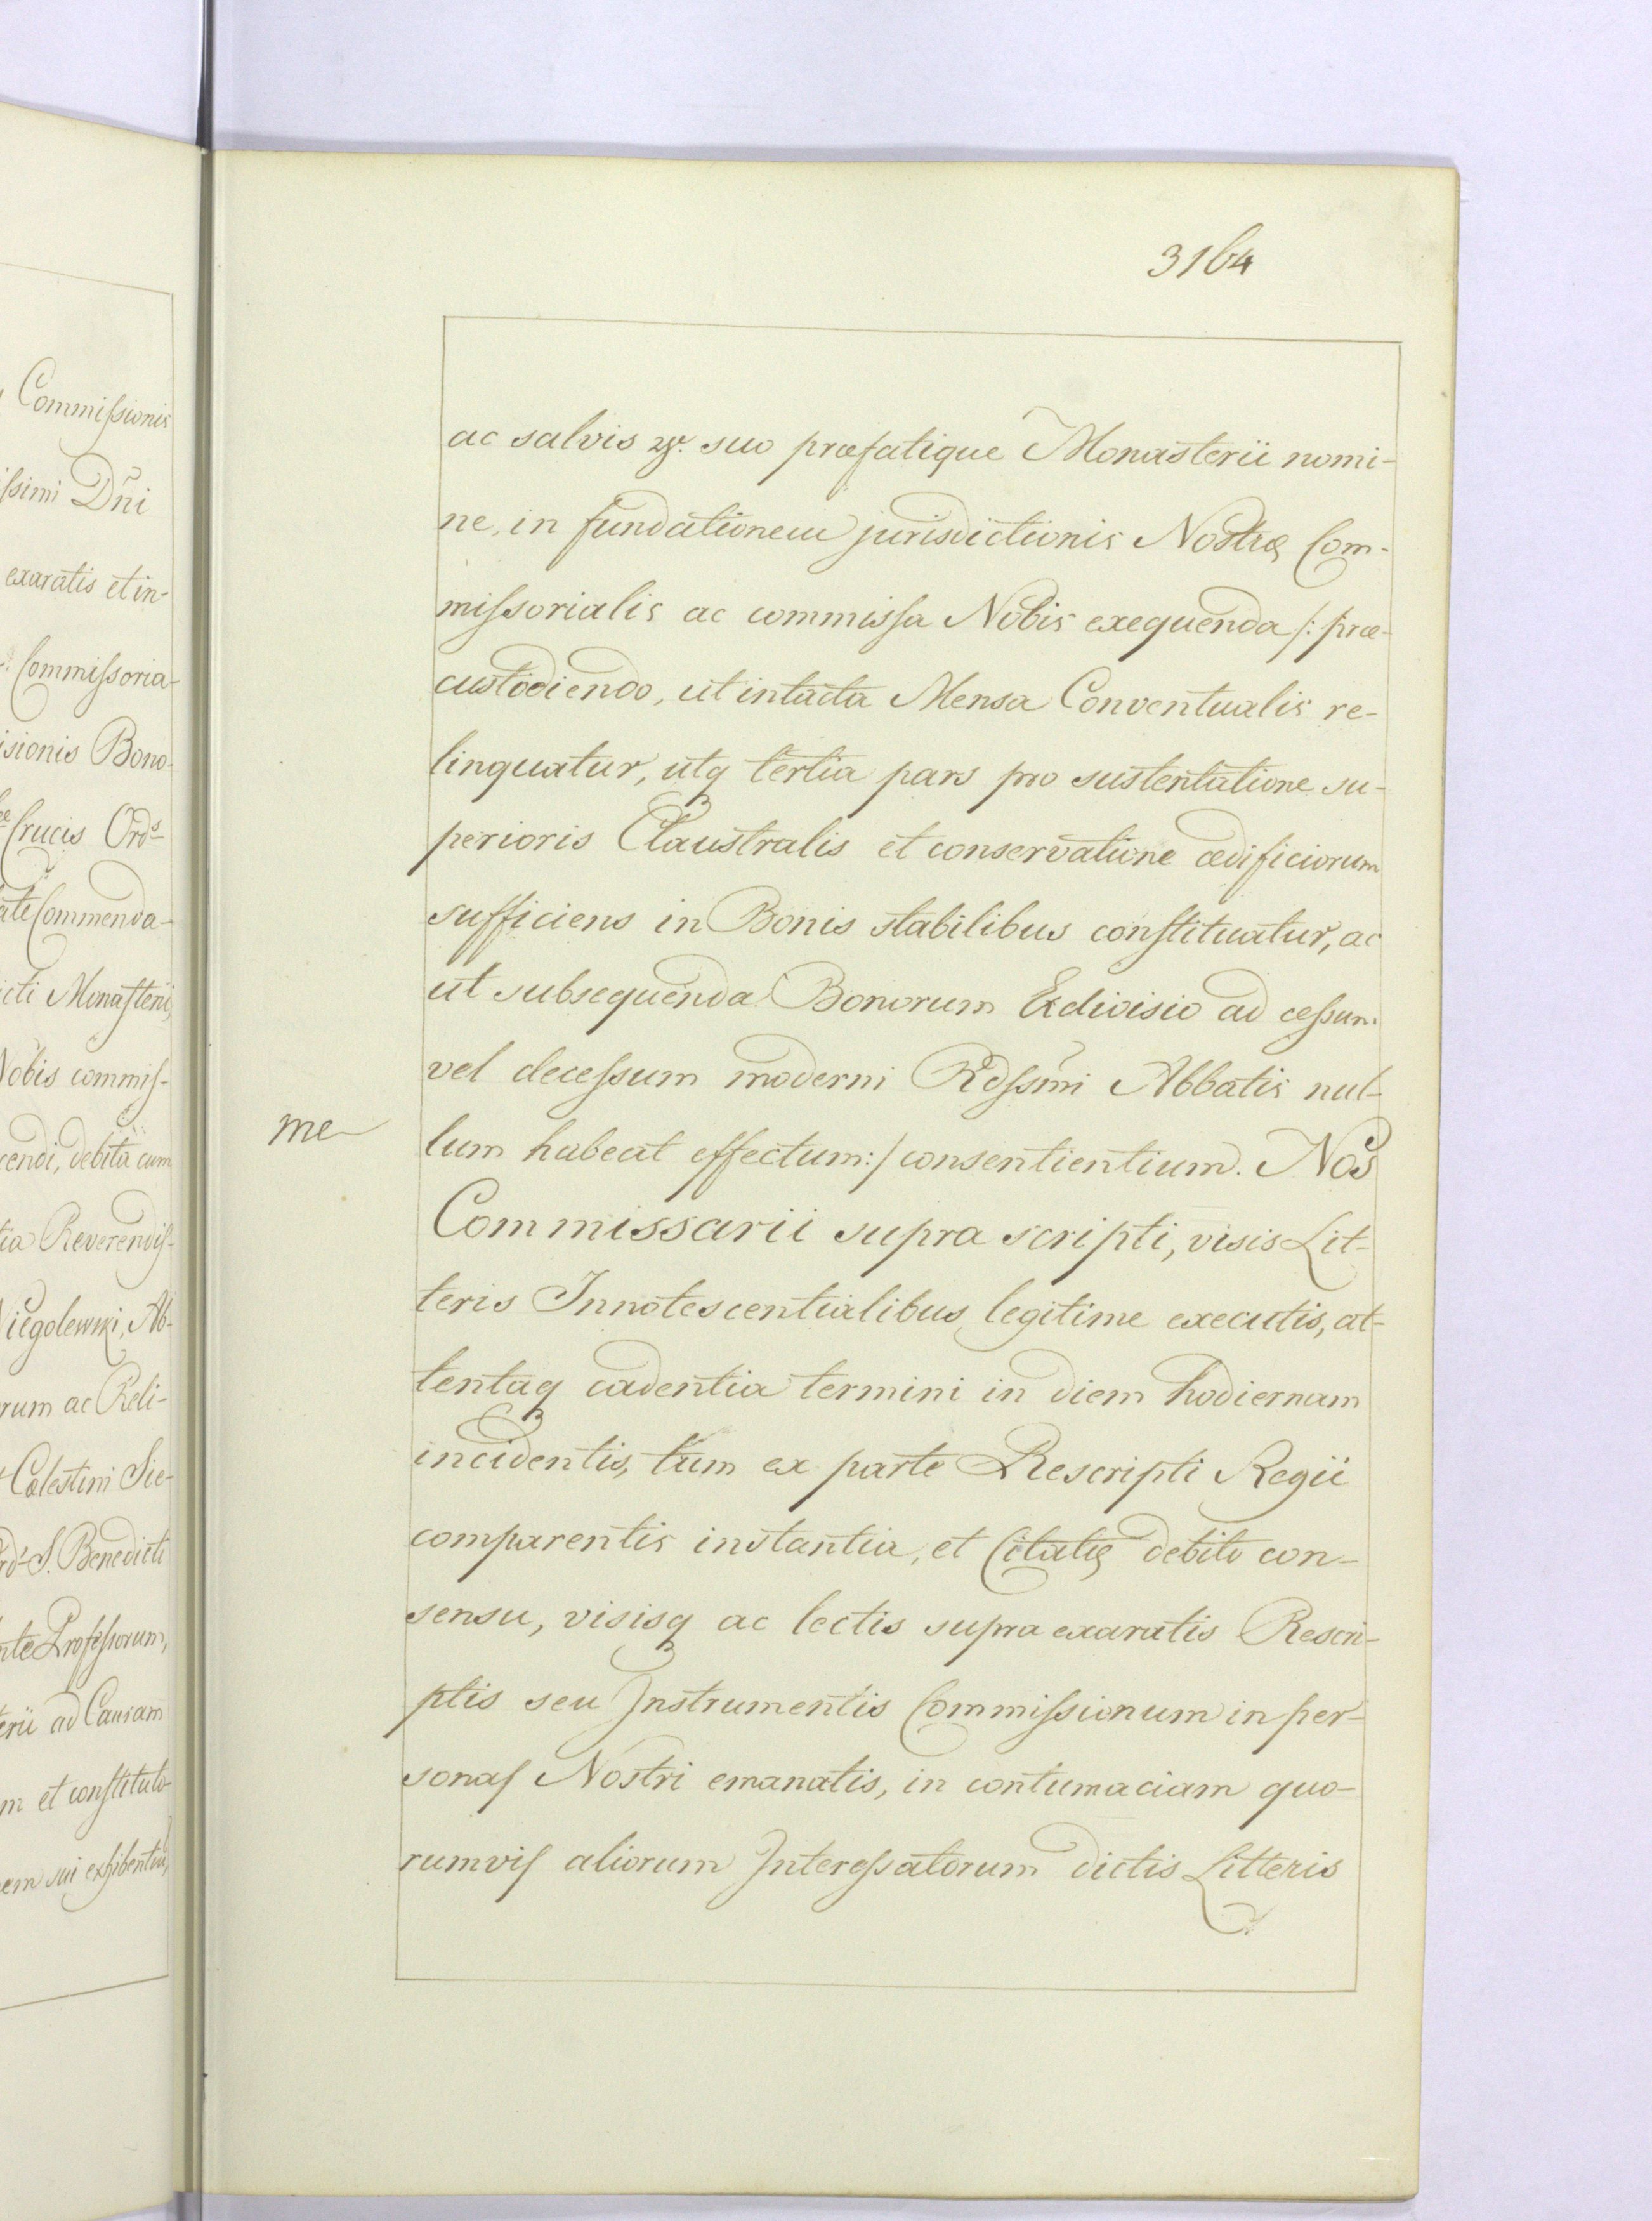 Commissionis
ssimi Dñi
exaratis et in-
Commissoria-
isionis Bono-
Crucis Ord^s
ate Commenda-
cti Monasterii,
Nobis commis-
cendi, debita cum
tia Reverendis-
Niegolewski, Ab-
rum ac Reli-
Cœlestini Sie-
rd^s S. Benedicti
nte Professorum,
erii ad Causam
m et constituto-
em sui exhibentiu,
3164
ac salvis &. suo præfatique Monasterii nomi-
ne, in fundationem jurisdictionis Nostræ Com-
missorialis ac commissa Nobis exequenda /: præ-
custodiendo, ut intacta Mensa Conventualis re-
linquatur, utq tertia pars pro sustentatione su-
perioris Claustralis et conservatione ædificiorum
sufficiens in Bonis stabilibus constituatur, ac
ut subsequenda Bonorum Exdivisio ad cessum
vel decessum moderni Rdssmi Abbatis nul-
me
lum habeat effectum :/ consentientium. Nos
Commissarii supra scripti, visis Lit-
teris Innotescentialibus legitime executis, at-
tentaq cadentia termini in diem hodiernam
incidentis, tum ex parte Rescripti Regii
comparentis instantia, et Citatæ debito con-
sensu, visisq ac lectis supra exaratis Rescri-
ptis seu Instrumentis Commissionum in per-
sonas Nostri emanatis, in contumaciam quo-
rumvis aliorum Interessatorum dictis Litteris